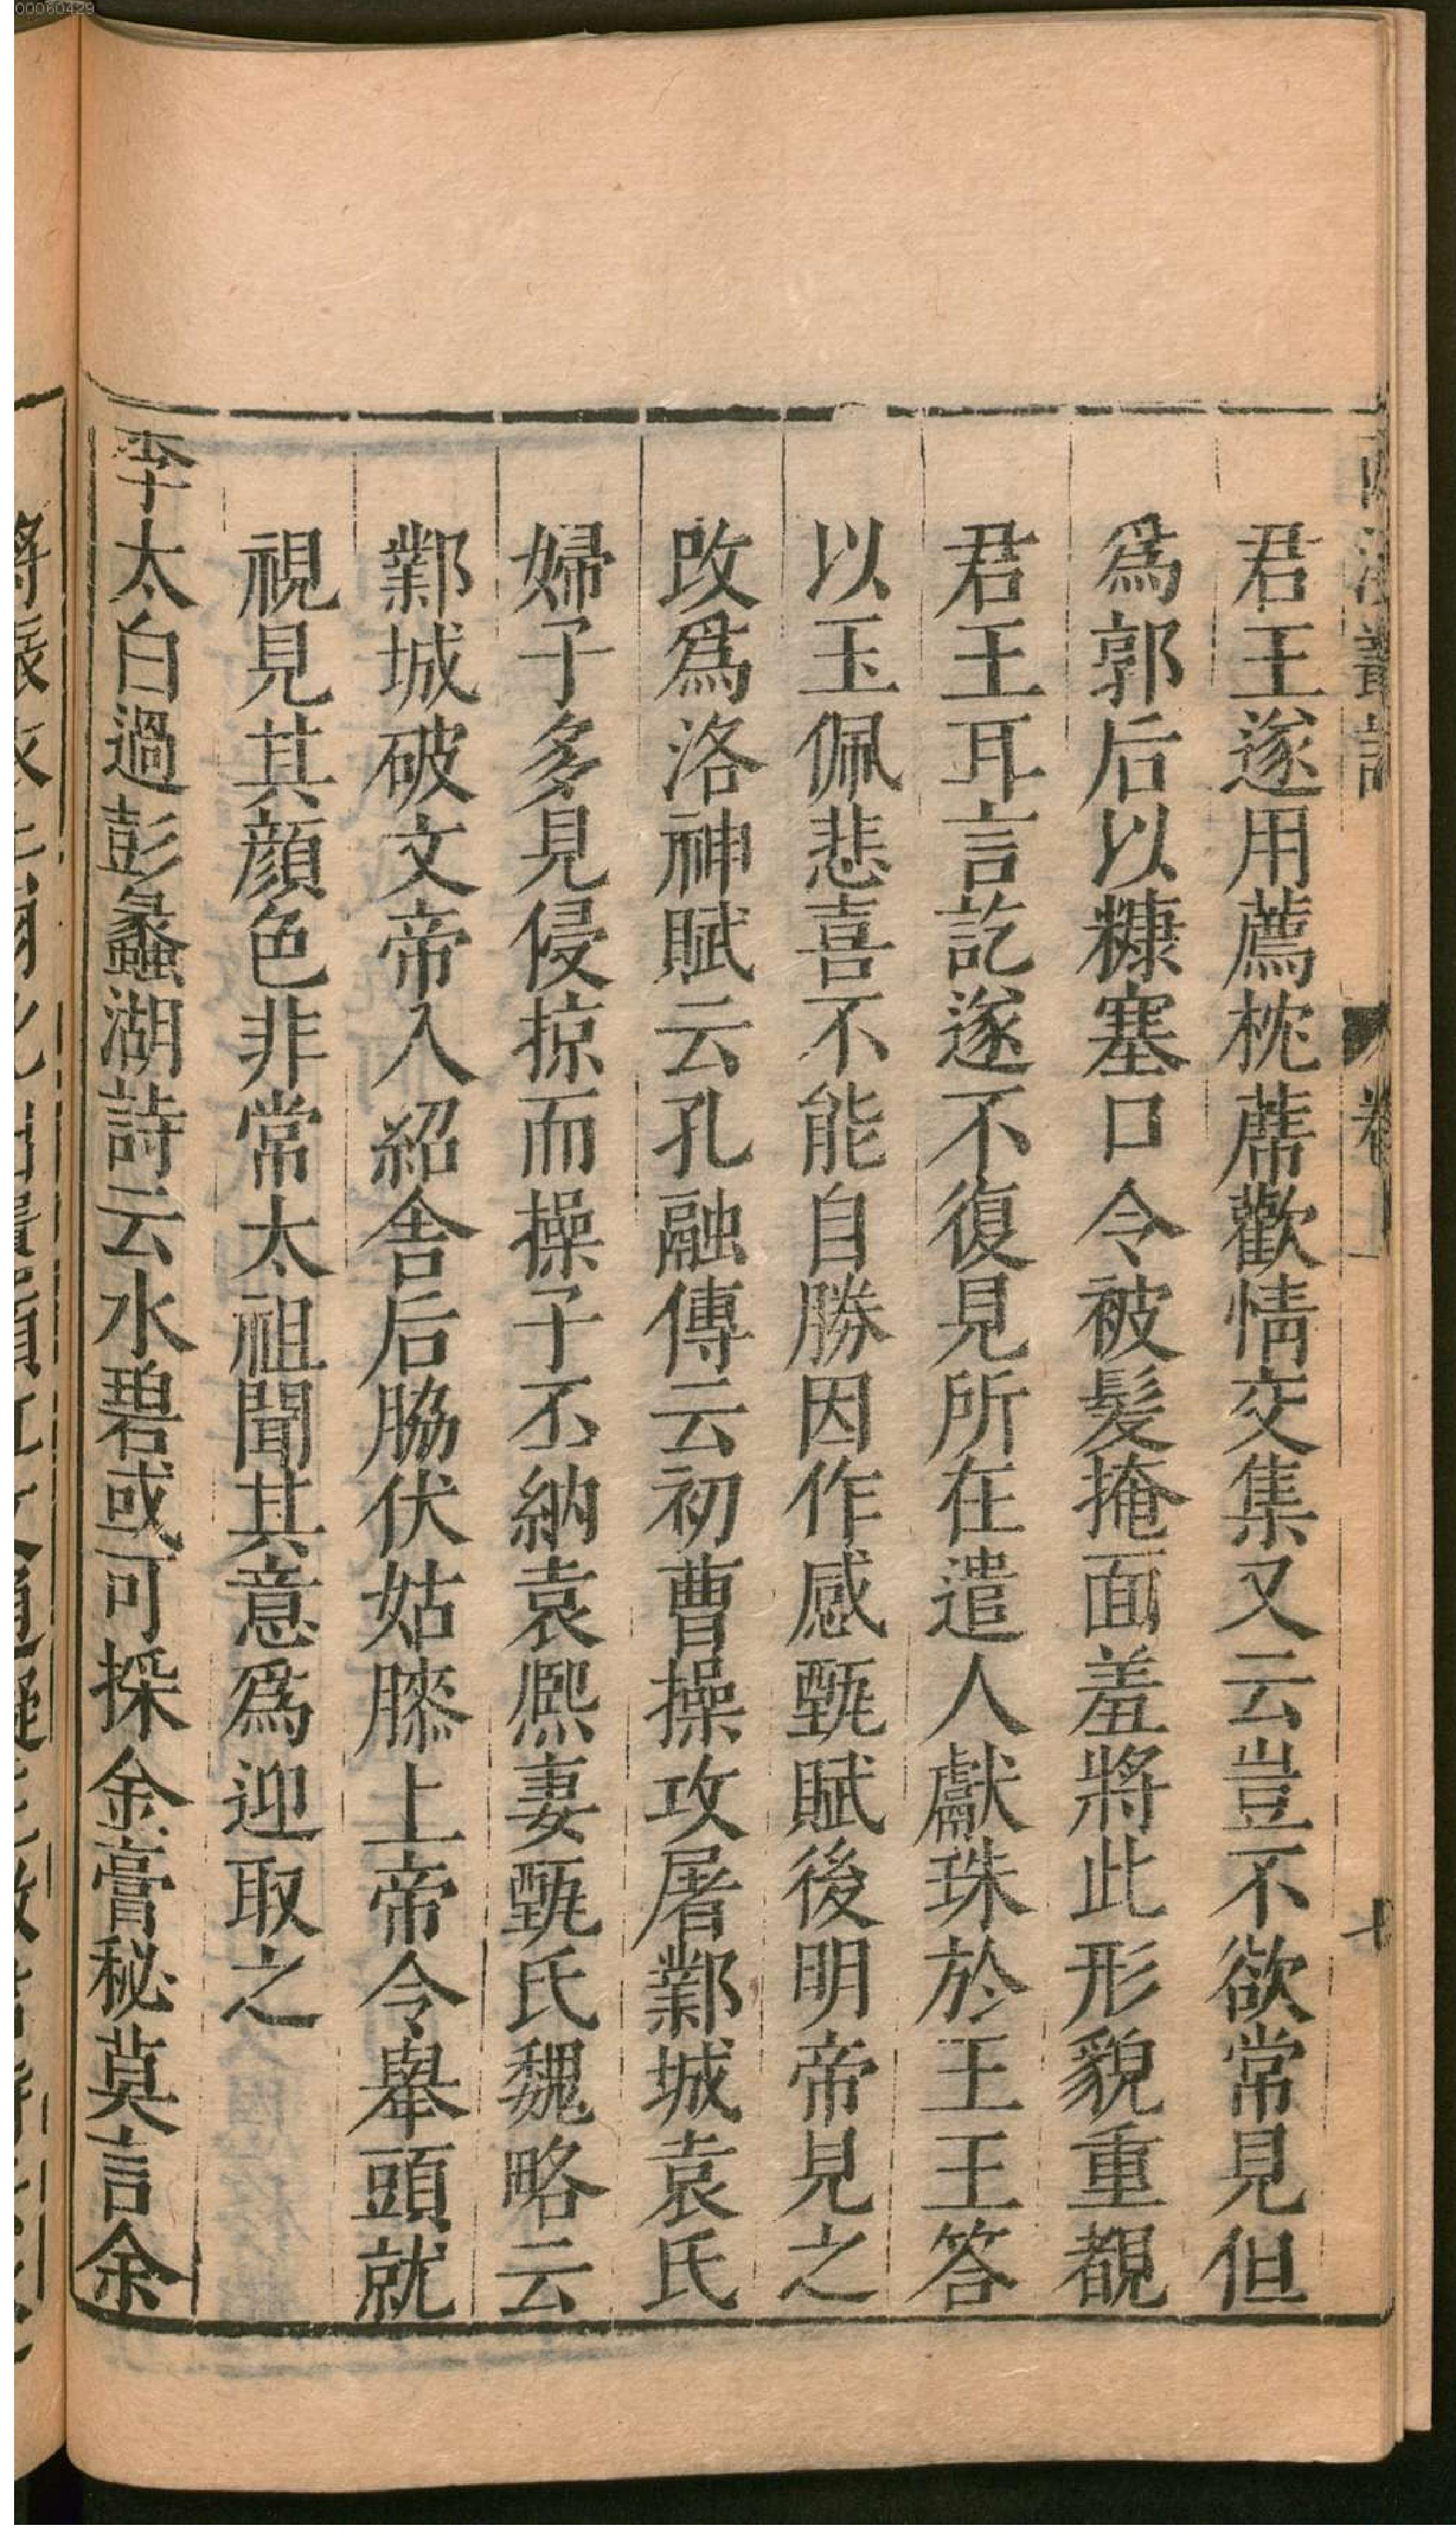 00060429
君王遂用薦枕蓆歡情交集又云豈不欲常見但
爲郭后以糠塞口令被髮掩面羞將此形貌重覩
君王耳言訖遂不復見所在遣人獻珠於王王答
以玉佩悲喜不能自勝因作感甄賦後明帝見之
改爲洛神賦云孔融傳云初曹操攻屠鄴城袁氏
婦子多見侵掠而操子丕納袁熙妻甄氏魏略云
鄴城破文帝入紹舍后脇伏姑膝上帝令舉頭就
視見其顏色非常太祖聞其意爲迎取之
李太白過彭蠡湖詩云水碧或可採金膏秘莫言余